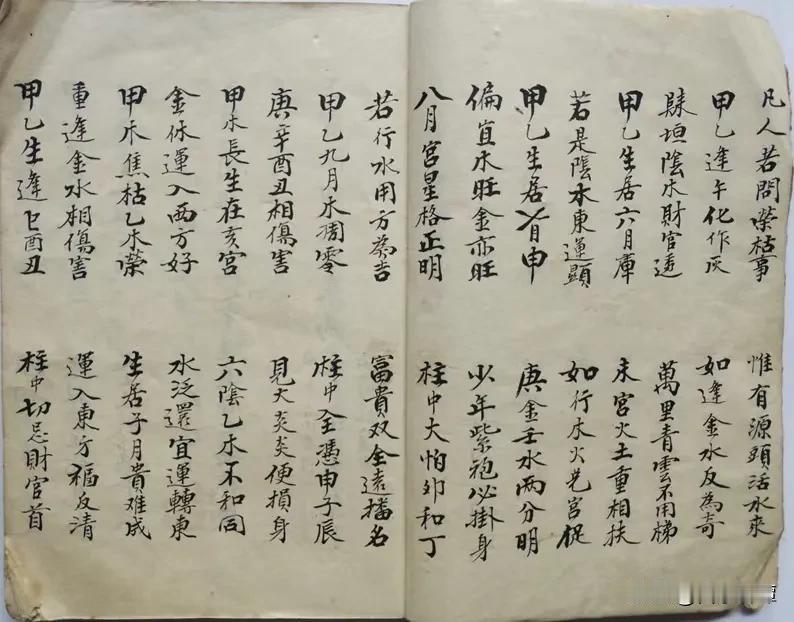 凡人若問榮枯事 惟有源頭活水來
甲乙逢午化作灰 如逢金水反為奇
垣陰木財官透 萬里青雲不用梯
甲乙生居六月庫 未宮火土重相扶
若是陰木東運顯 如行木火宮促
甲乙生居月申 庚金壬水兩分明
偏宜木旺金亦旺 少年紫袍必掛身
八月宮星格正明 柱中大怕卯和丁
若行水用方為吉 富貴双全遠播名
甲乙九月木凋零 柱中全憑申子辰
庚辛酉丑相傷害 見火炎炎便損身
甲木長生在亥宮 六陰乙木不和同
金休運入西方好 水泛還宜運轉東
甲木焦枯乙木榮 生居子月貴难成
重逢金水相傷害 運入東方福反清
甲乙生逢巳酉丑 柱中切忌財官首